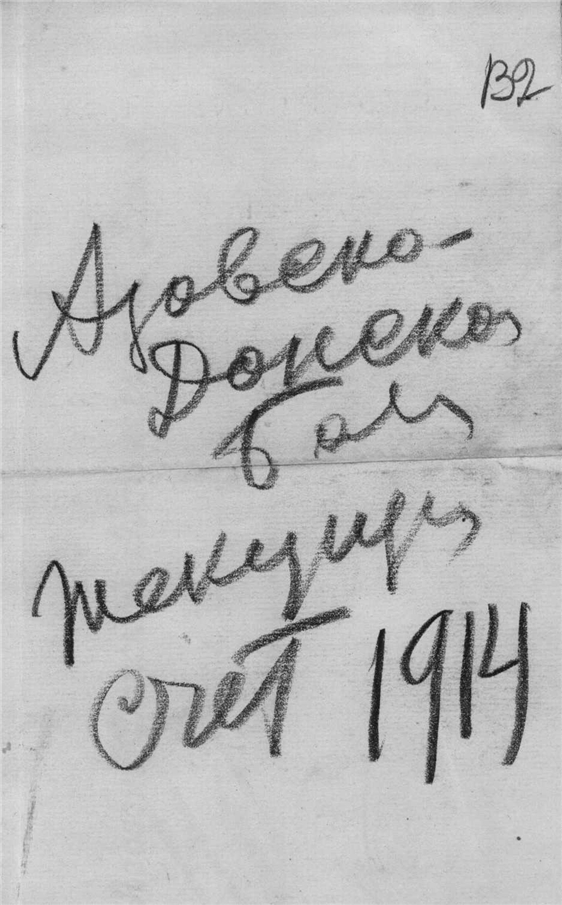 132
Азовско-
Донской
банк
текущий
счет 1914